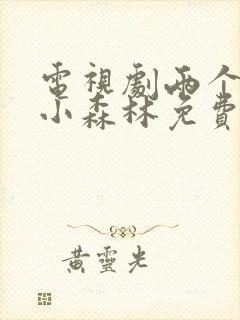 電視劇兩个
小森林免費
黃靈光